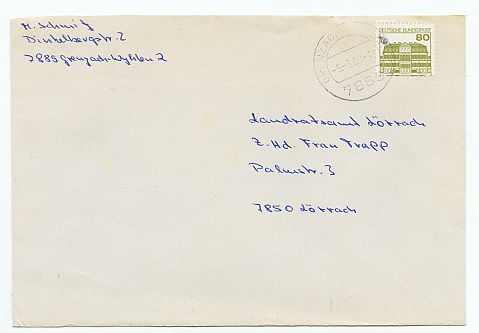 H. Schmitz
Dinkelbergstr. 2
7889 Grenzach-Wyhlen 2
DEUTSCHE BUNDESPOST
80
7889
Landratsamt Lörrach
z. Hd. Frau Trapp
Palmstr. 3
7850 Lörrach